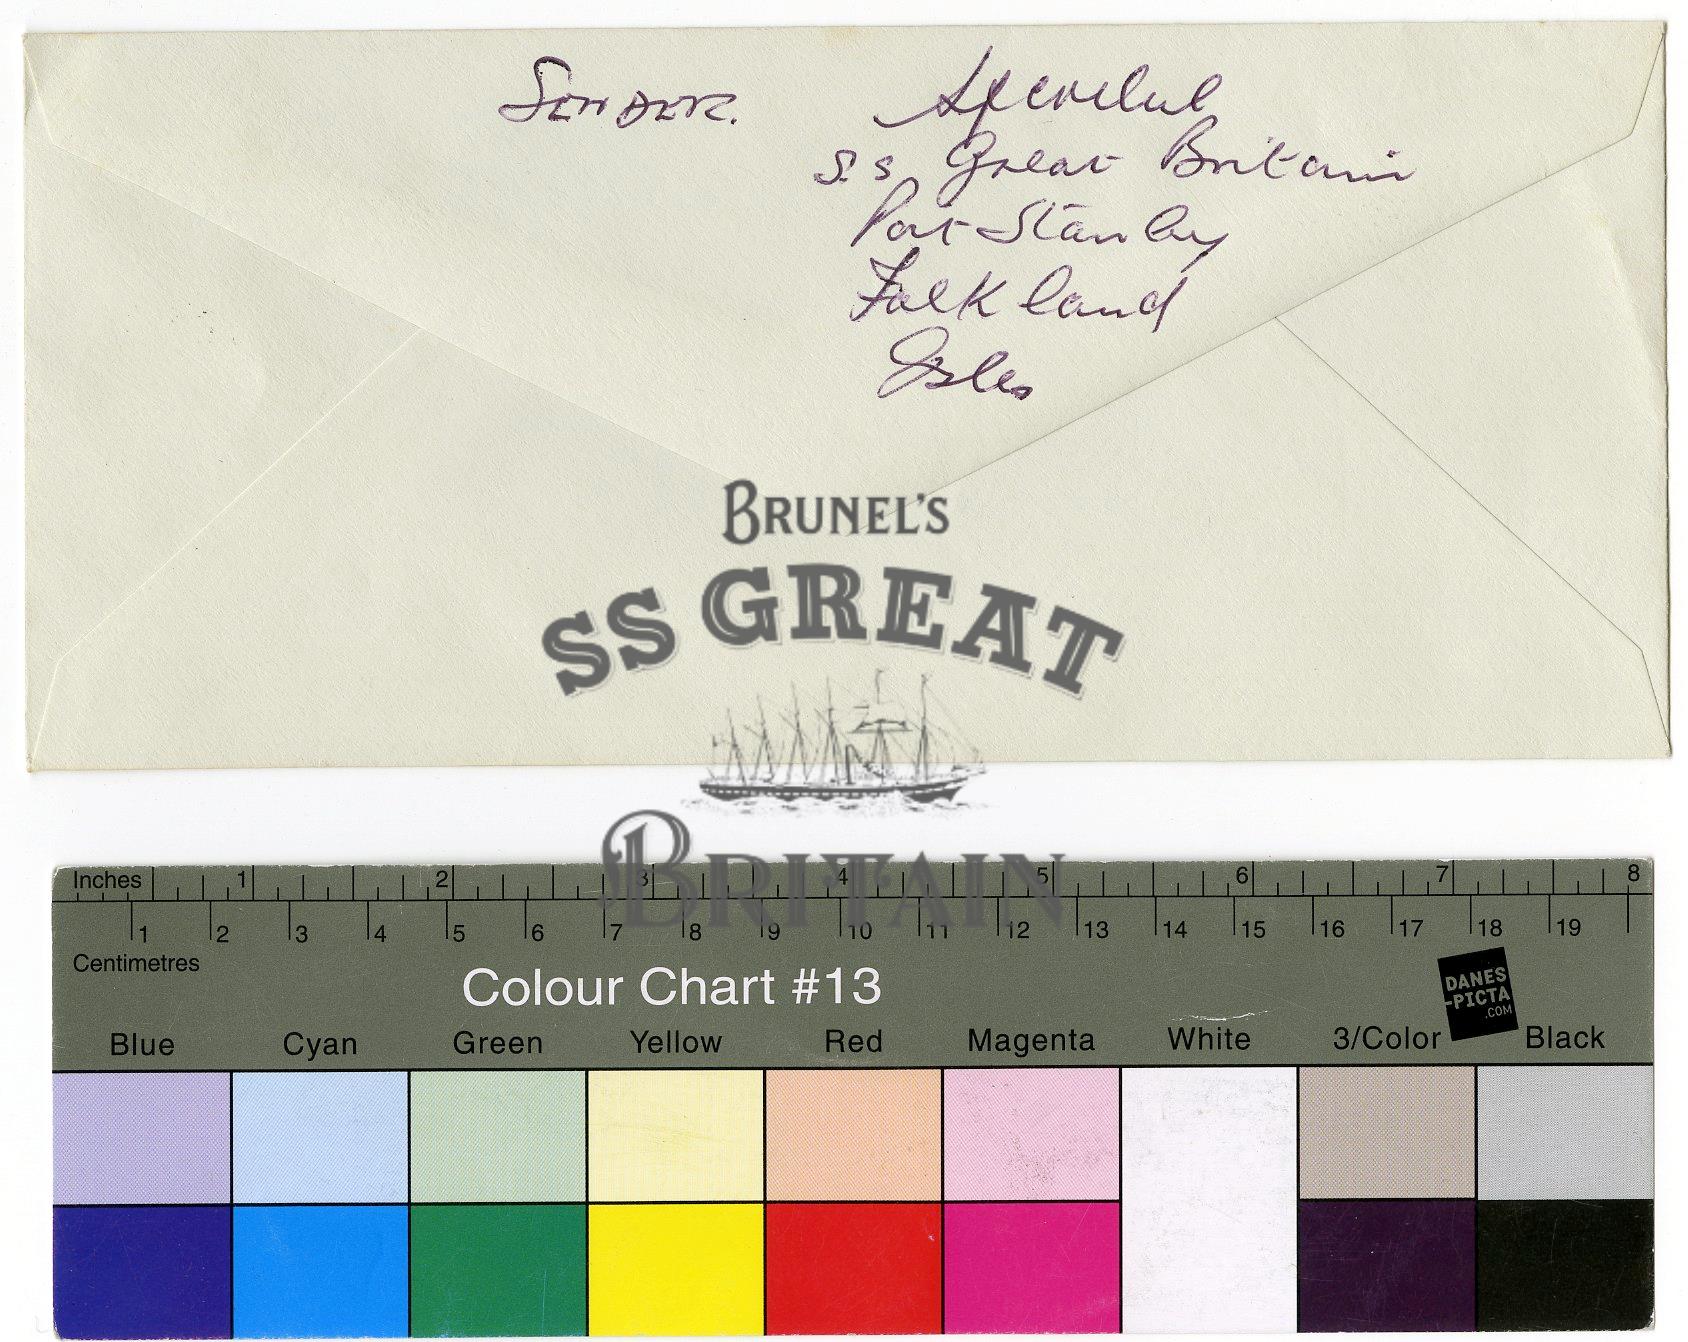 SENDER.
S.S Great Britain
Port Stanley
Falkland
Isles
BRUNEL'S
SS GREAT
BRITAIN
Inches 1 2 3 4 5 6 7 8
1 2 3 4 5 6 7 8 9 10 11 12 13 14 15 16 17 18 19
Centimetres
Colour Chart #13
DANES
-PICTA
.COM
Blue Cyan Green Yellow Red Magenta White 3/Color Black